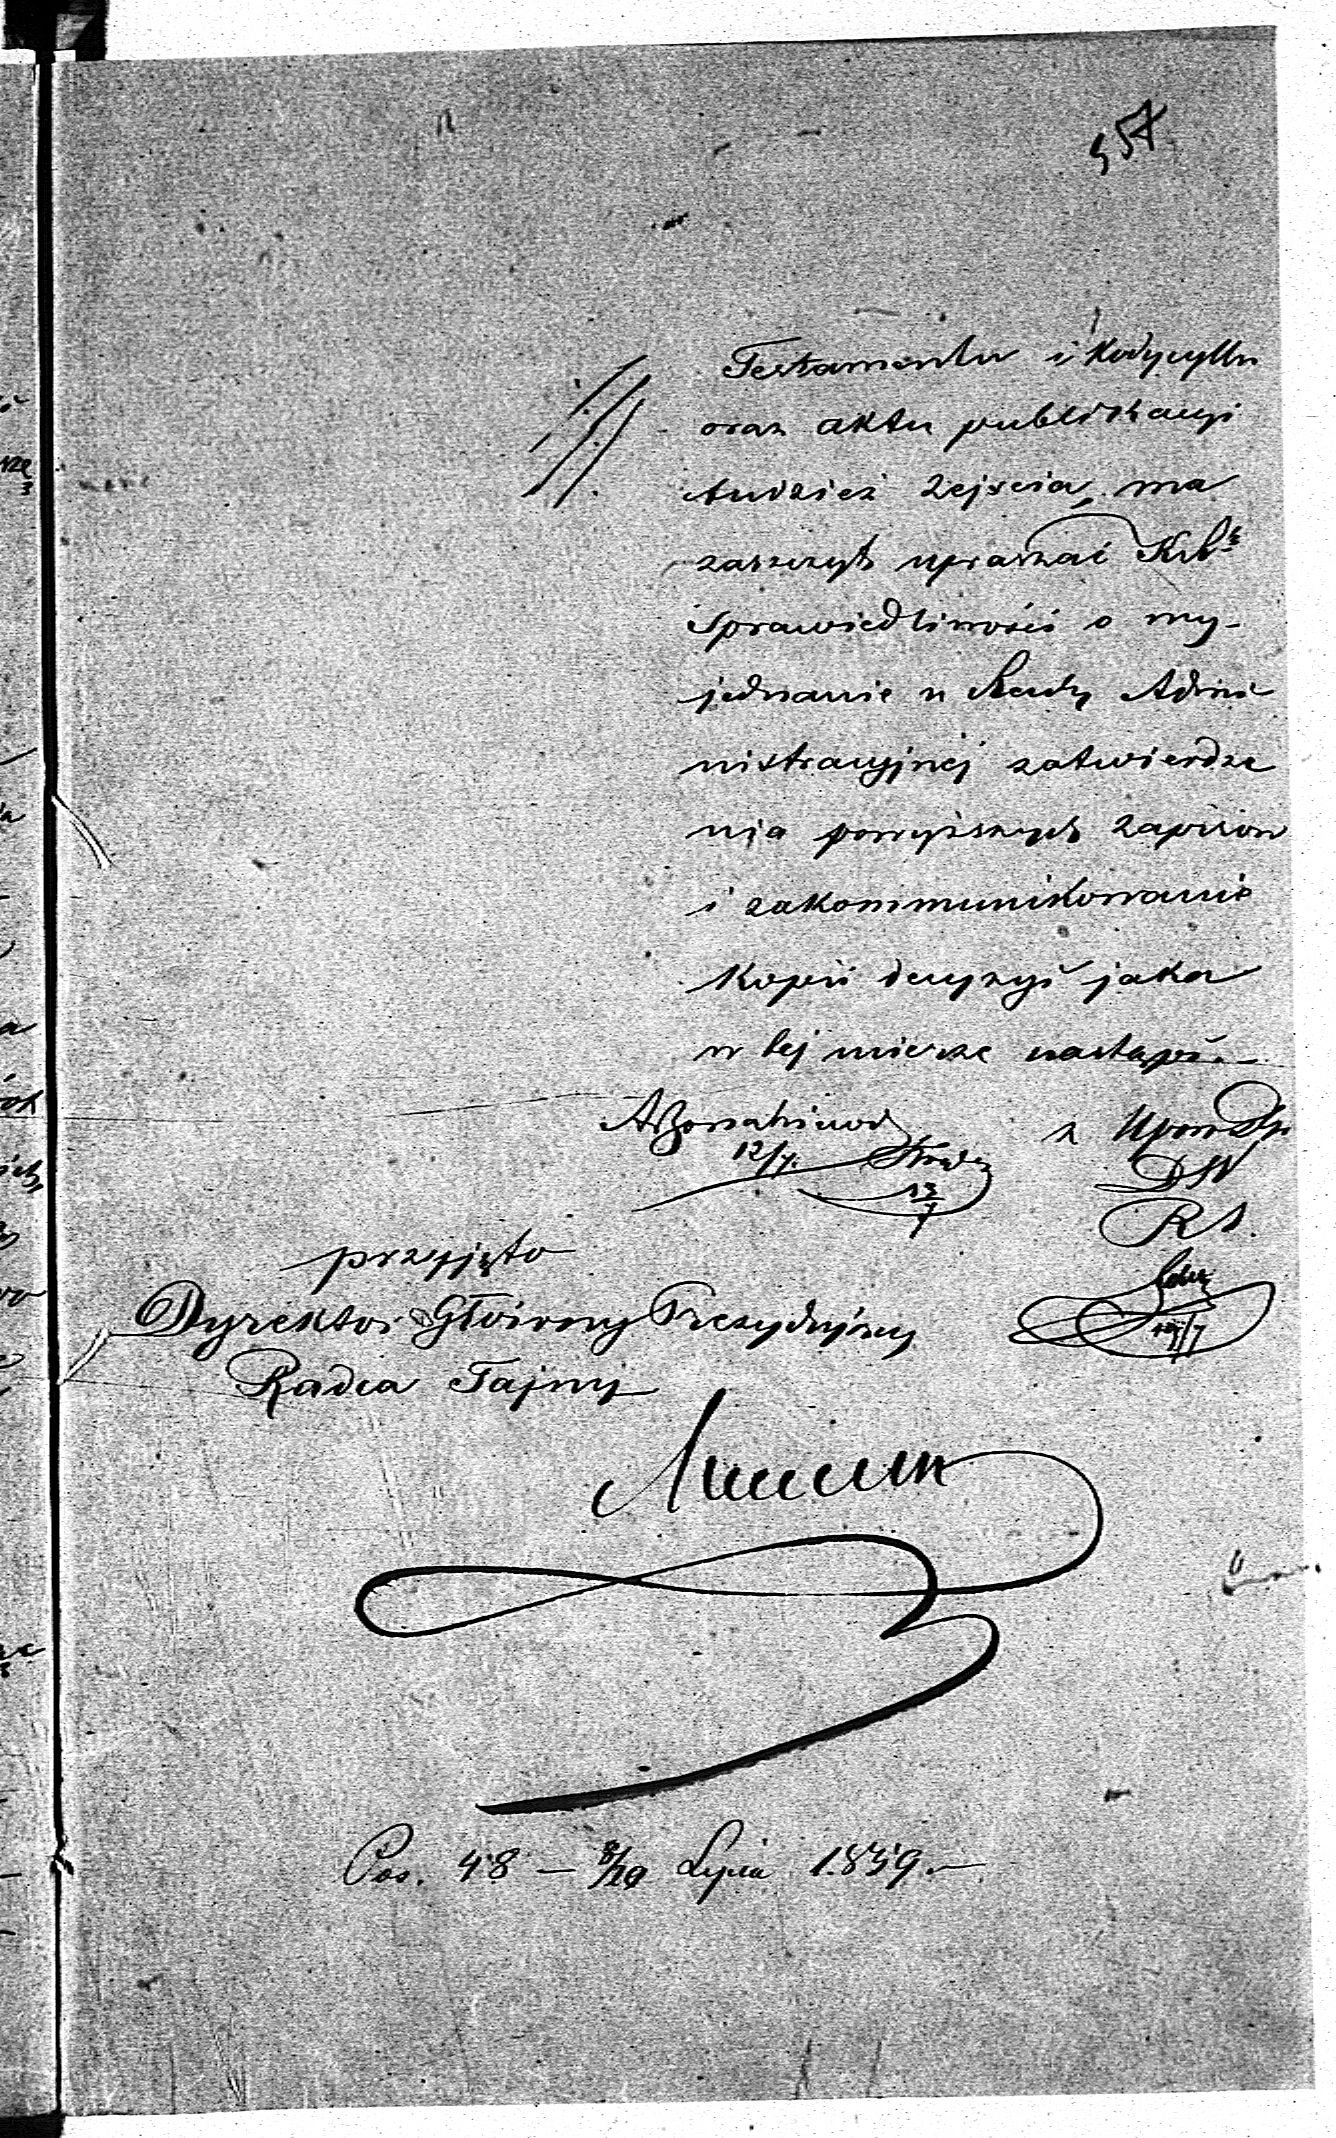 357
Testamentu i Kodycyllu
oraz aktu publikacyi
tudzież zejścia, ma
zaszczyt upraszać
Sprawiedliwości o wy-
jednanie u Rady Admi
nistracyjnéj zatwierdze
nia powyższych zapisów
i zakommunikowanie
Kopii decyzyi jaka
w tej mierze nastąpi.—
12/7.
z Upow
13/7
DW
RS.
przyjęto
Dyrektor Główny Prezydujący
Radca Tajny
Pos. 48 — 8/20 Lipca 1859.—